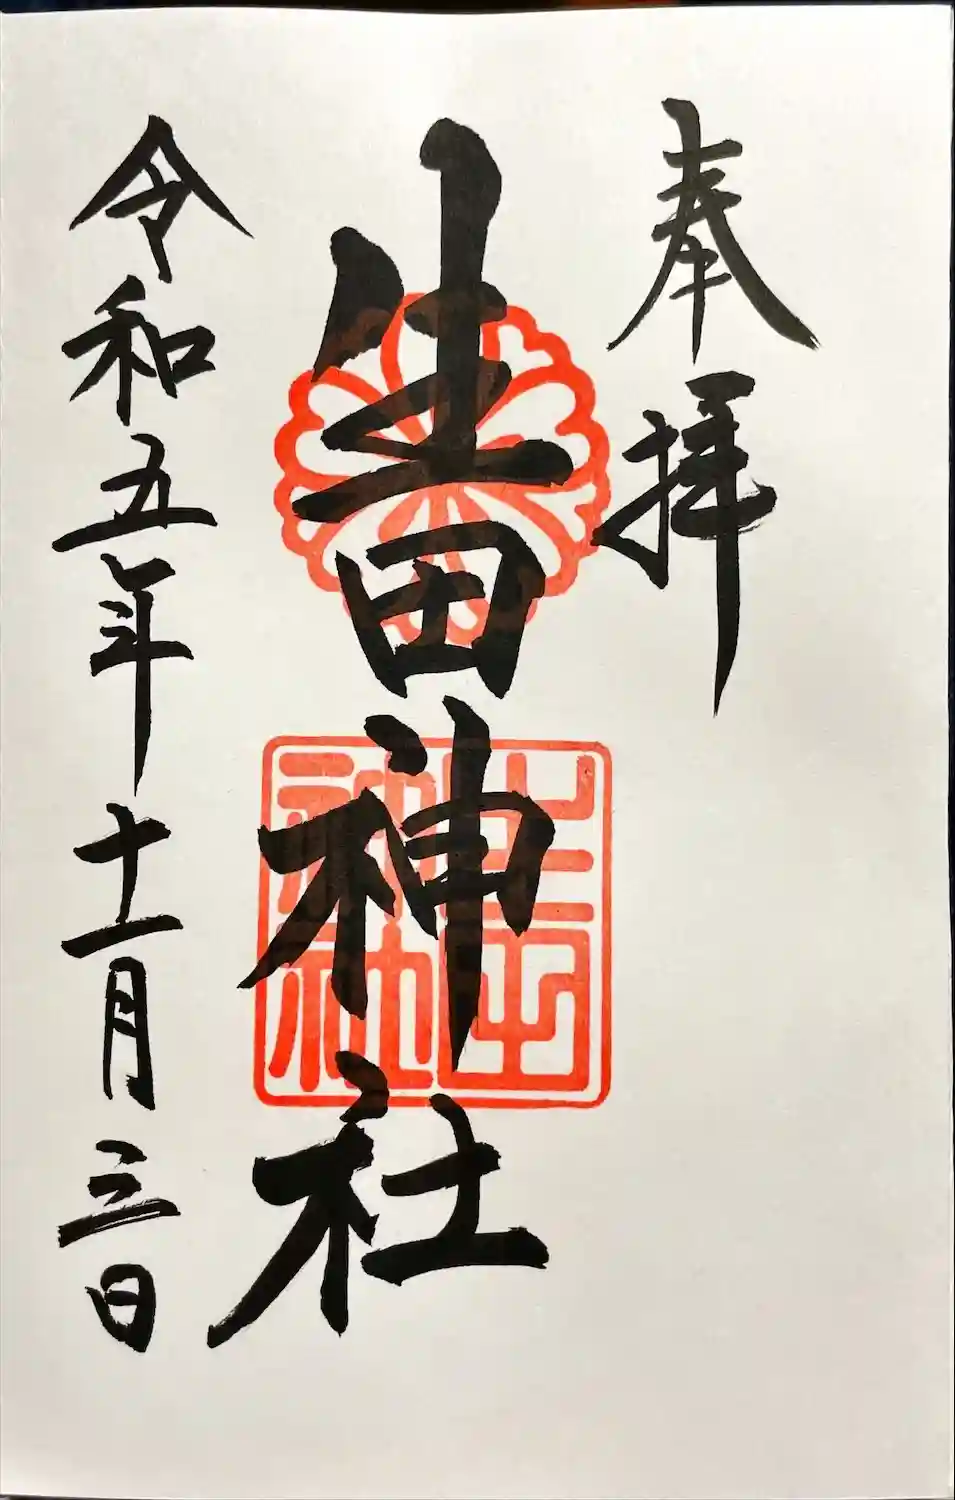 奉拝
生田神社
令和五年十一月三日
生田
神社